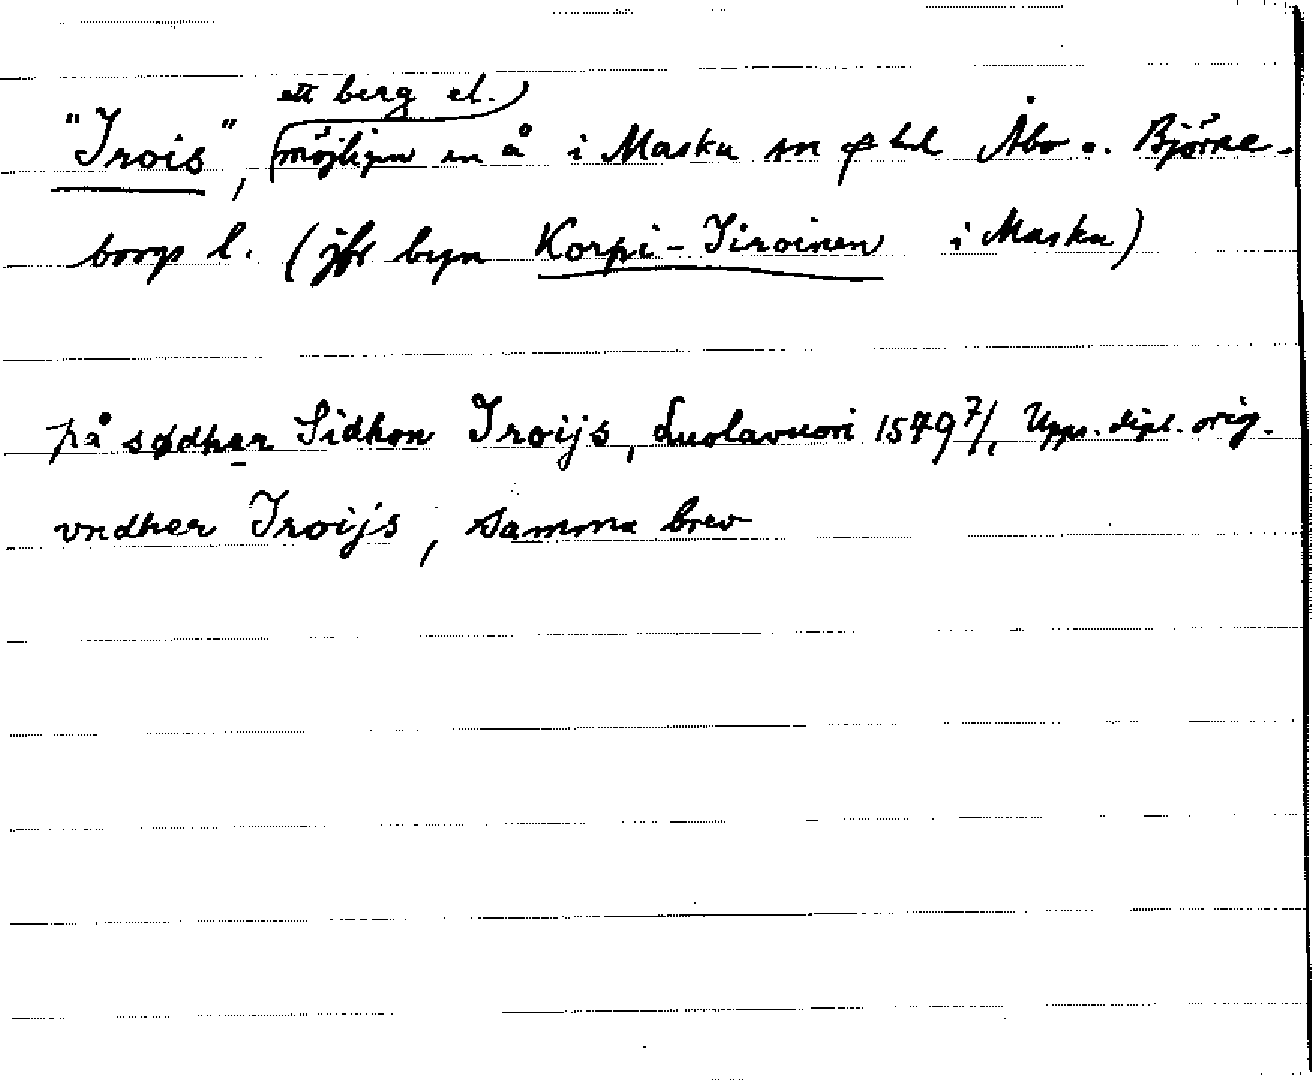 ett berg el.
"Irois", möjligen en å i Masku sn o hd Åbo o. Björne-
borgs l. (jfr byn Korpi-Iiroinen i Masku)
på sødher Sidhon Iroijs, Luolavuori 1549 7/, Upps. dipl. orig.
vndher Iroijs, samma brev